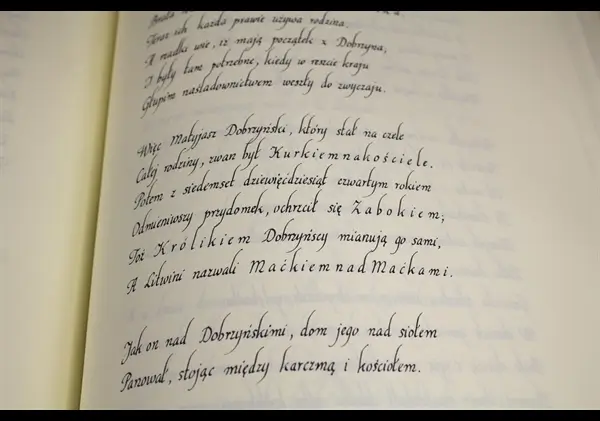 Teraz ich każda prawie używa rodzina,
A rzadka wie, iż mają początek z Dobrzyna,
I były tam potrzebne, kiedy w reszcie kraju
Głupim naśladownictwem weszły do zwyczaju.
Więc Matyjasz Dobrzyński, który stał na czele
Całej rodziny, zwan był Kurkiemnakościele.
Potem z siedemset dziewięćdziesiąt czwartym rokiem
Odmieniwszy przydomek, ochrzcił się Zabokiem;
Toż Królikiem Dobrzyńscy mianują go sami,
A Litwini nazwali Maćkiem nad Maćkami.
Jak on nad Dobrzyńskimi, dom jego nad siołem
Panował, stojąc między karczmą i kościołem.